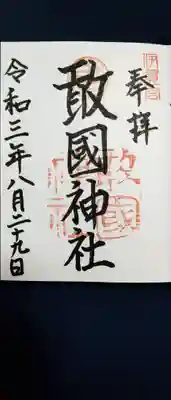 奉拝
敢國神社
令和三年八月二十九日